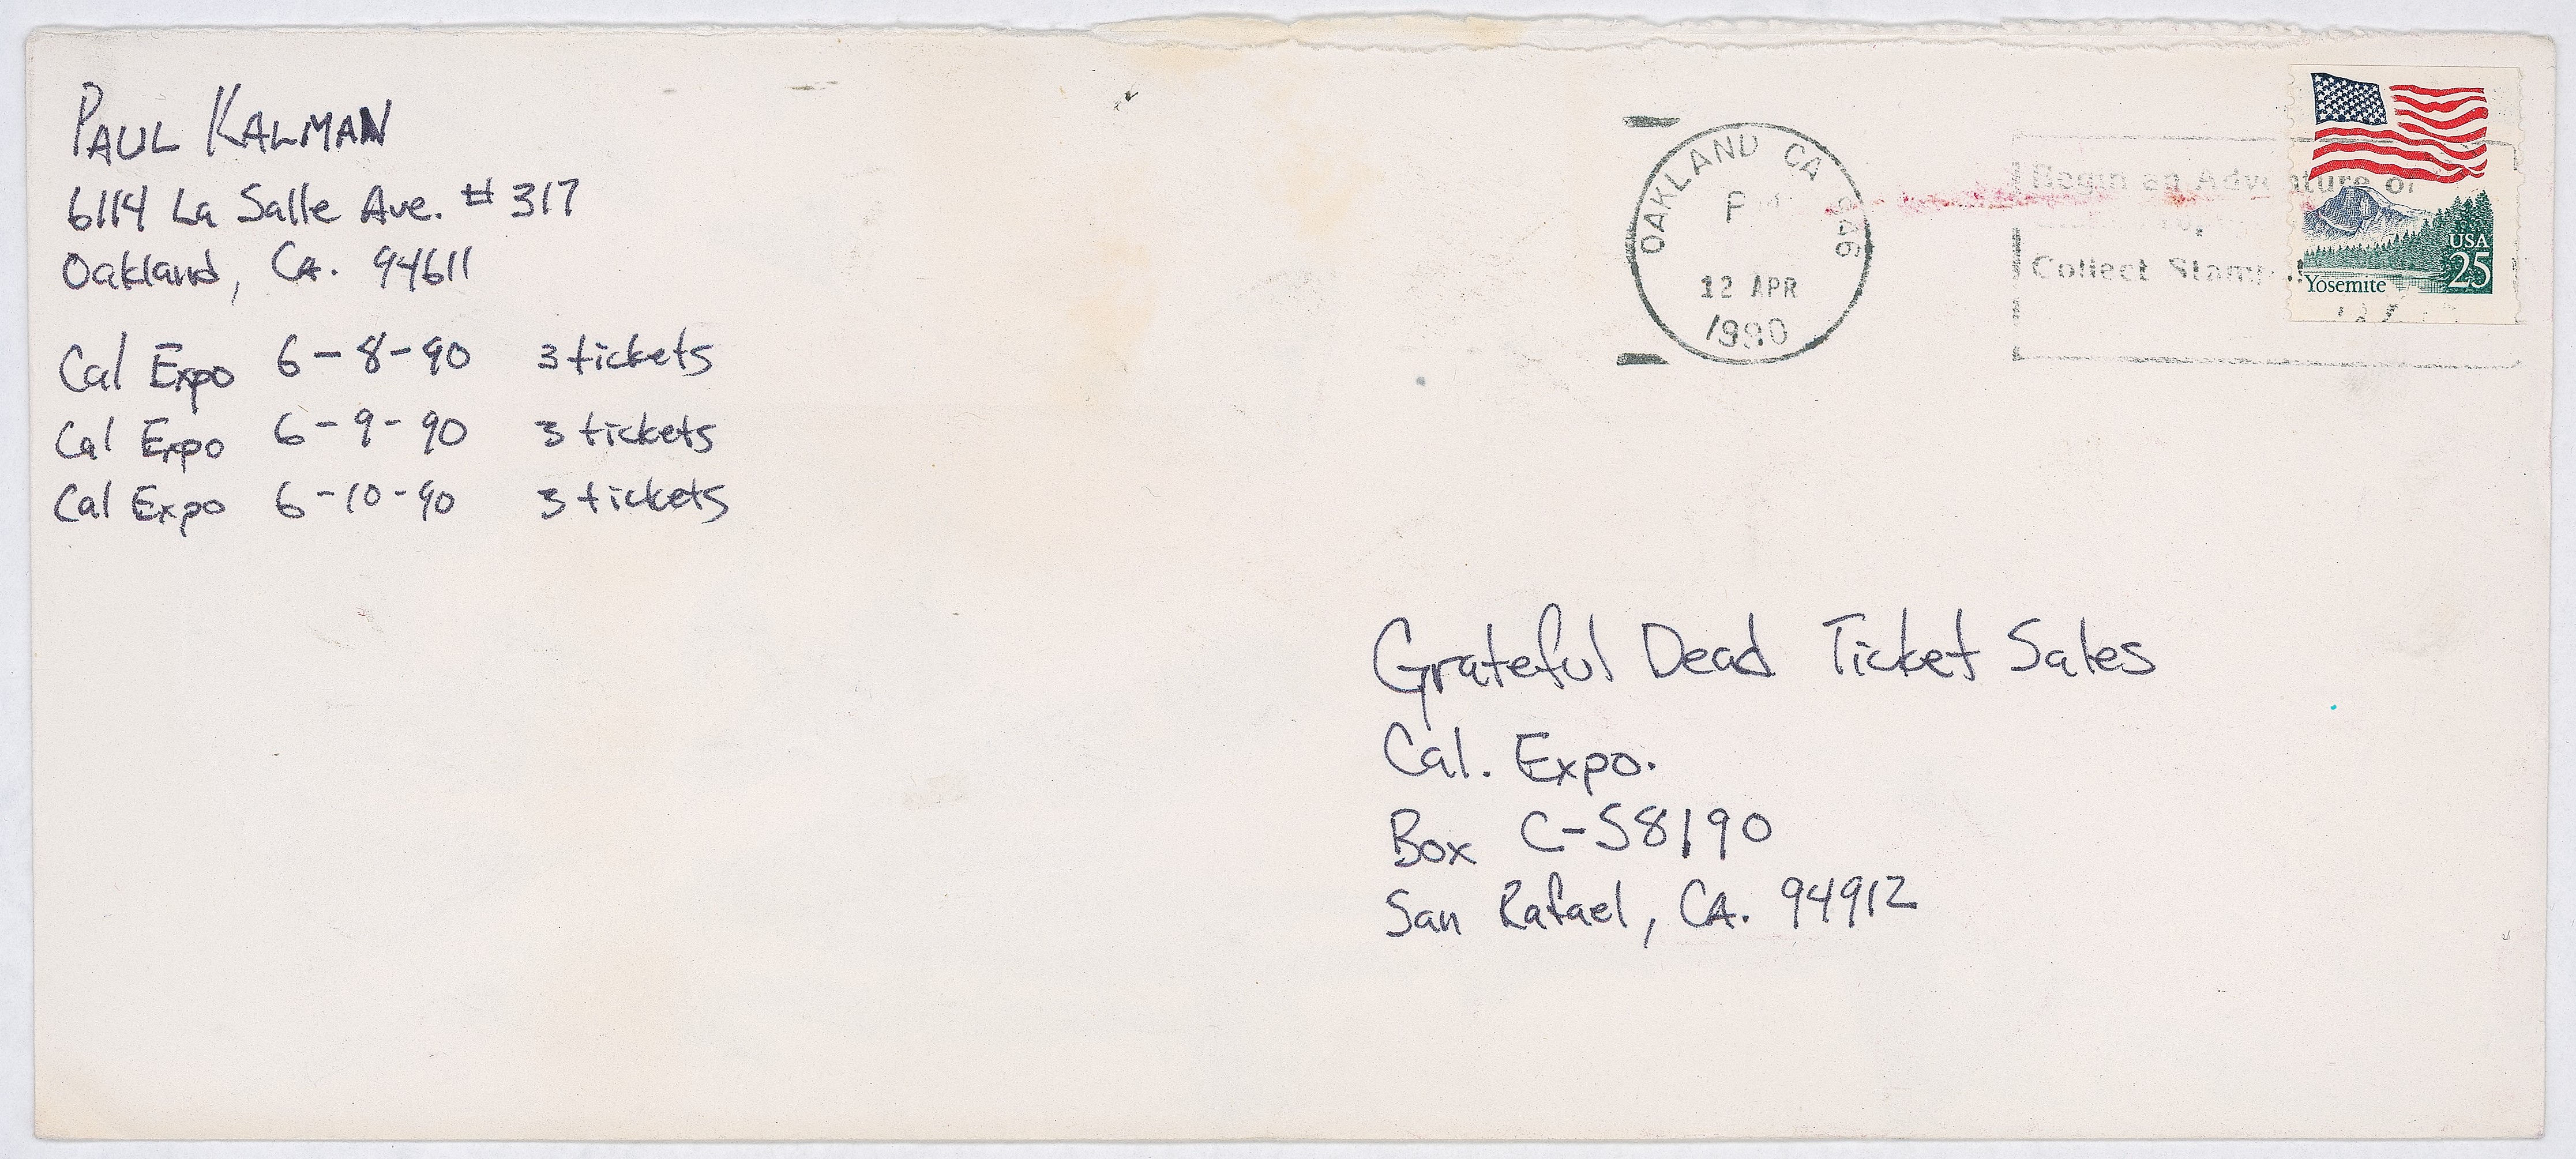 PAUL KALMAN
6114 La Salle Ave. # 317
Oakland, CA. 94611
Cal Expo 6-8-90 3 tickets
Cal Expo 6-9-90 3 tickets
Cal Expo 6-10-90 3 tickets
OAKLAND CA 946
PM
12 APR
1990
Begin an Adventure
Collect Stamps
USA
25
Yosemite
Grateful Dead Ticket Sales
Cal. Expo.
Box C-58190
San Rafael, CA. 94912